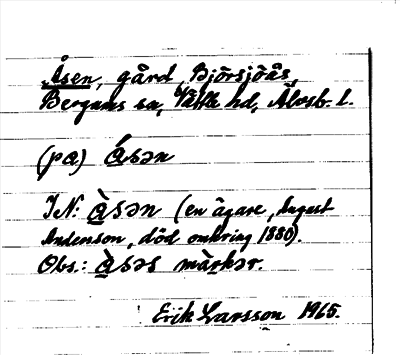 Åsen, gård, Björsjöås,
Bergums sn, Vättle hd, Älvsb. l.
(på) åsən
IN: àsən (en ägare, August
Andersson, död omkring 1880).
Obs.: àsəs màrkər.
Erik Larsson 1965.